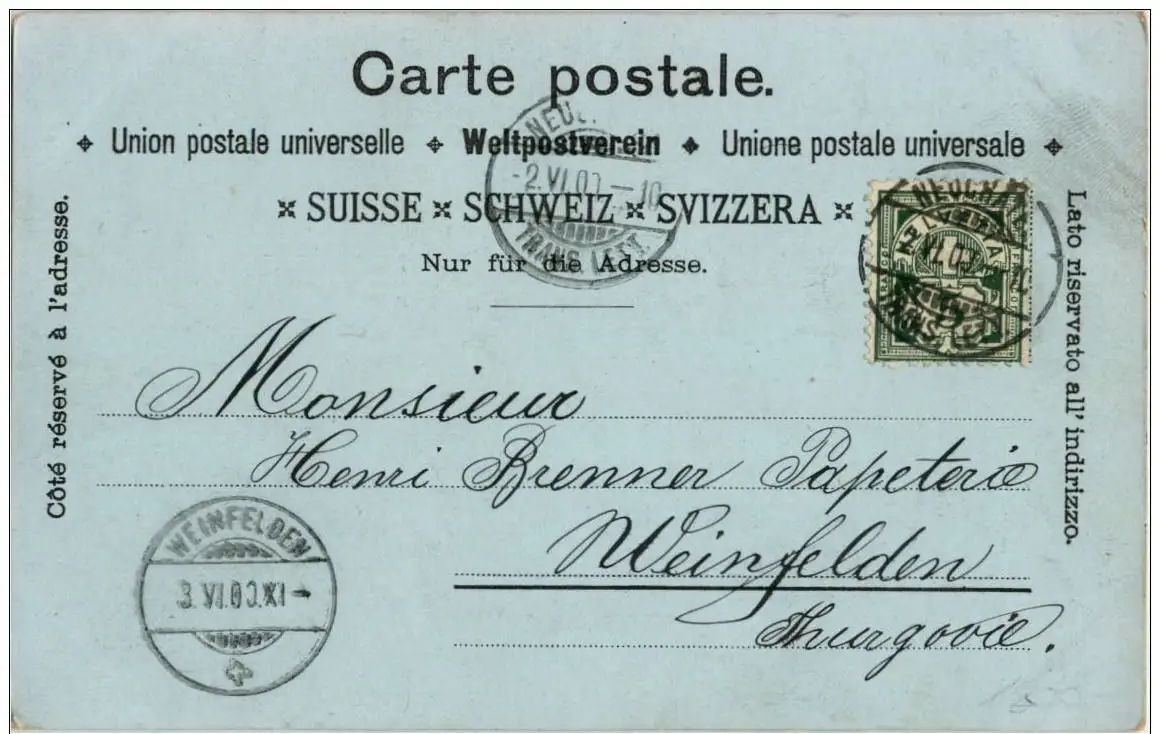 Carte postale.
Union postale universelle Weltpostverein Unione postale universale
SUISSE SCHWEIZ SVIZZERA
Nur für die Adresse.
Côté réservé à l'adresse.
Lato riservato all' indirizzo.
-2.VI.00.-10
TRANS. LETT.
HELVETIA
Monsieur
Henri Brenner Papeterie
Weinfelden
Thurgovie.
WEINFELDEN
3.VI.00.XI-